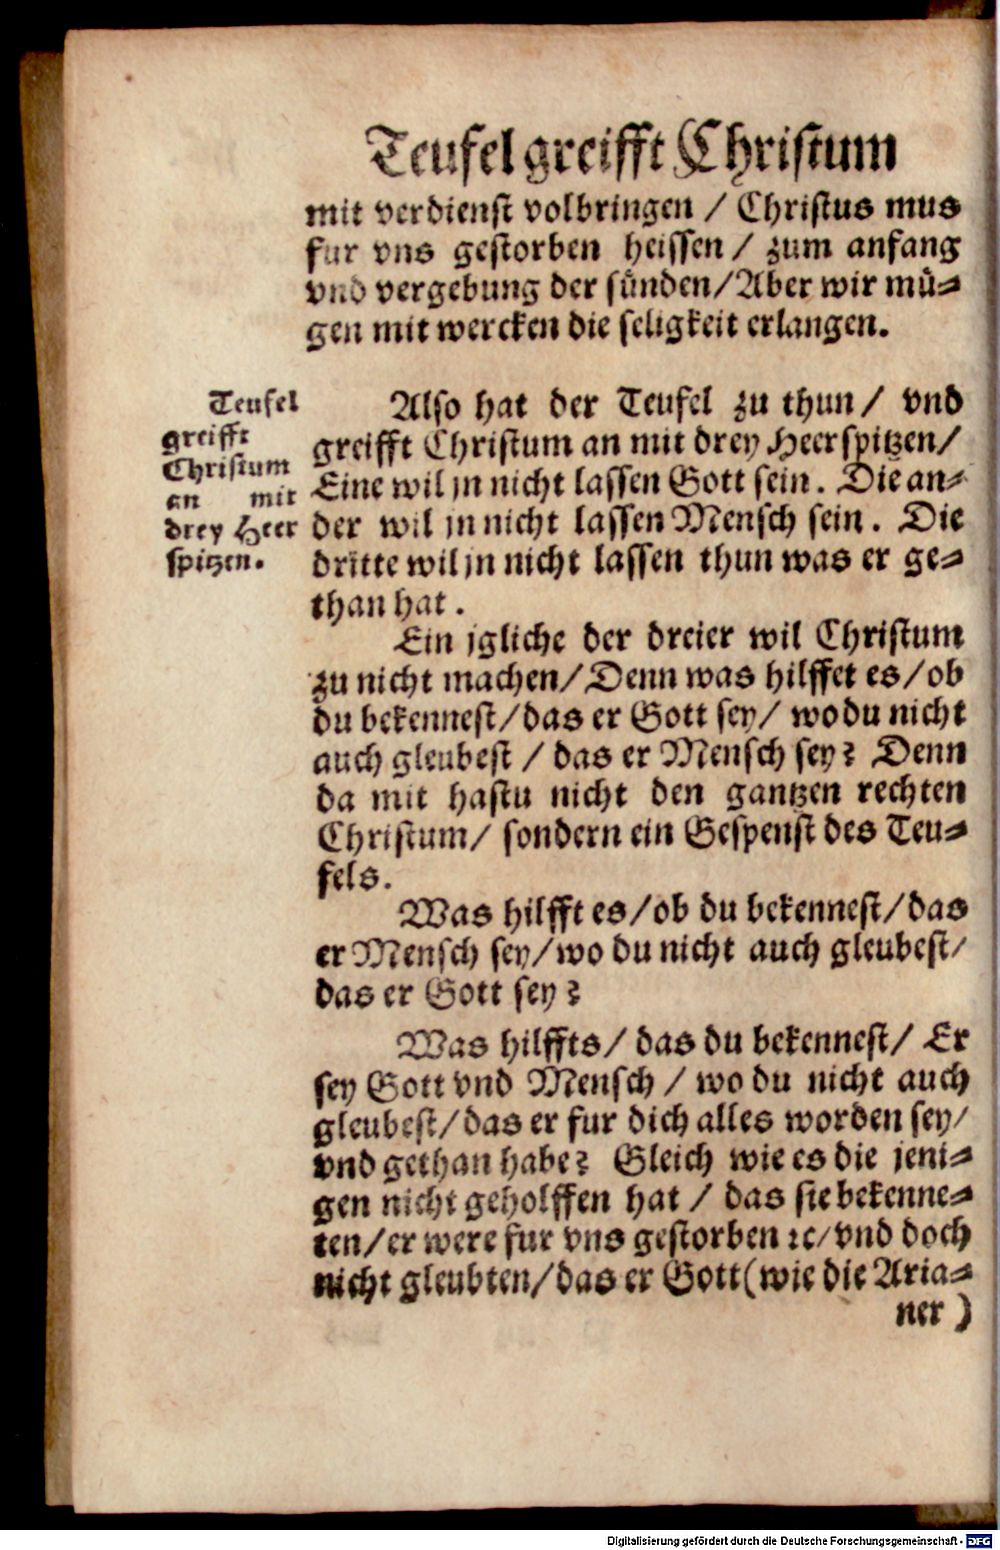 Teufel greifft Christum
mit verdienst volbringen / Christus mus
fur vns gestorben heissen / zum anfang
vnd vergebung der sünden/Aber wir mü⸗
gen mit wercken die seligkeit erlangen.
Teufel
greifft
Christum
an mit
drey Heer
spitzen.
Also hat der Teufel zu thun / vnd
greifft Christum an mit drey Heerspitzen/
Eine wil jn nicht lassen Gott sein. Die an⸗
der wil jn nicht lassen Mensch sein. Die
dritte wil jn nicht lassen thun was er ge⸗
than hat.
Ein jgliche der dreier wil Christum
zu nicht machen/ Denn was hilffet es/ob
du bekennest/das er Gott sey/ wo du nicht
auch gleubest / das er Mensch sey? Denn
da mit hastu nicht den gantzen rechten
Christum/ sondern ein Gespenst des Teu⸗
fels.
Was hilfft es/ob du bekennest/das
er Mensch sey/wo du nicht auch gleubest/
das er Gott sey?
Was hilffts/ das du bekennest/ Er
sey Gott vnd Mensch / wo du nicht auch
gleubest/das er fur dich alles worden sey/
vnd gethan habe? Gleich wie es die jeni⸗
gen nicht geholffen hat / das sie bekenne⸗
ten/er were fur vns gestorben ꝛc/vnd doch
nicht gleubten/das er Gott (wie die Aria⸗
ner )
Digitalisierung gefördert durch die Deutsche Forschungsgemeinschaft - DFG